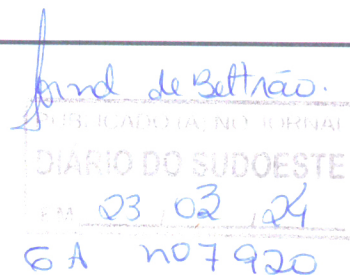 Jornal de Beltrão.
PUBLICADO(A) NO JORNAL
DIÁRIO DO SUDOESTE
EM 23 / 02 / 24
6A nº 7920